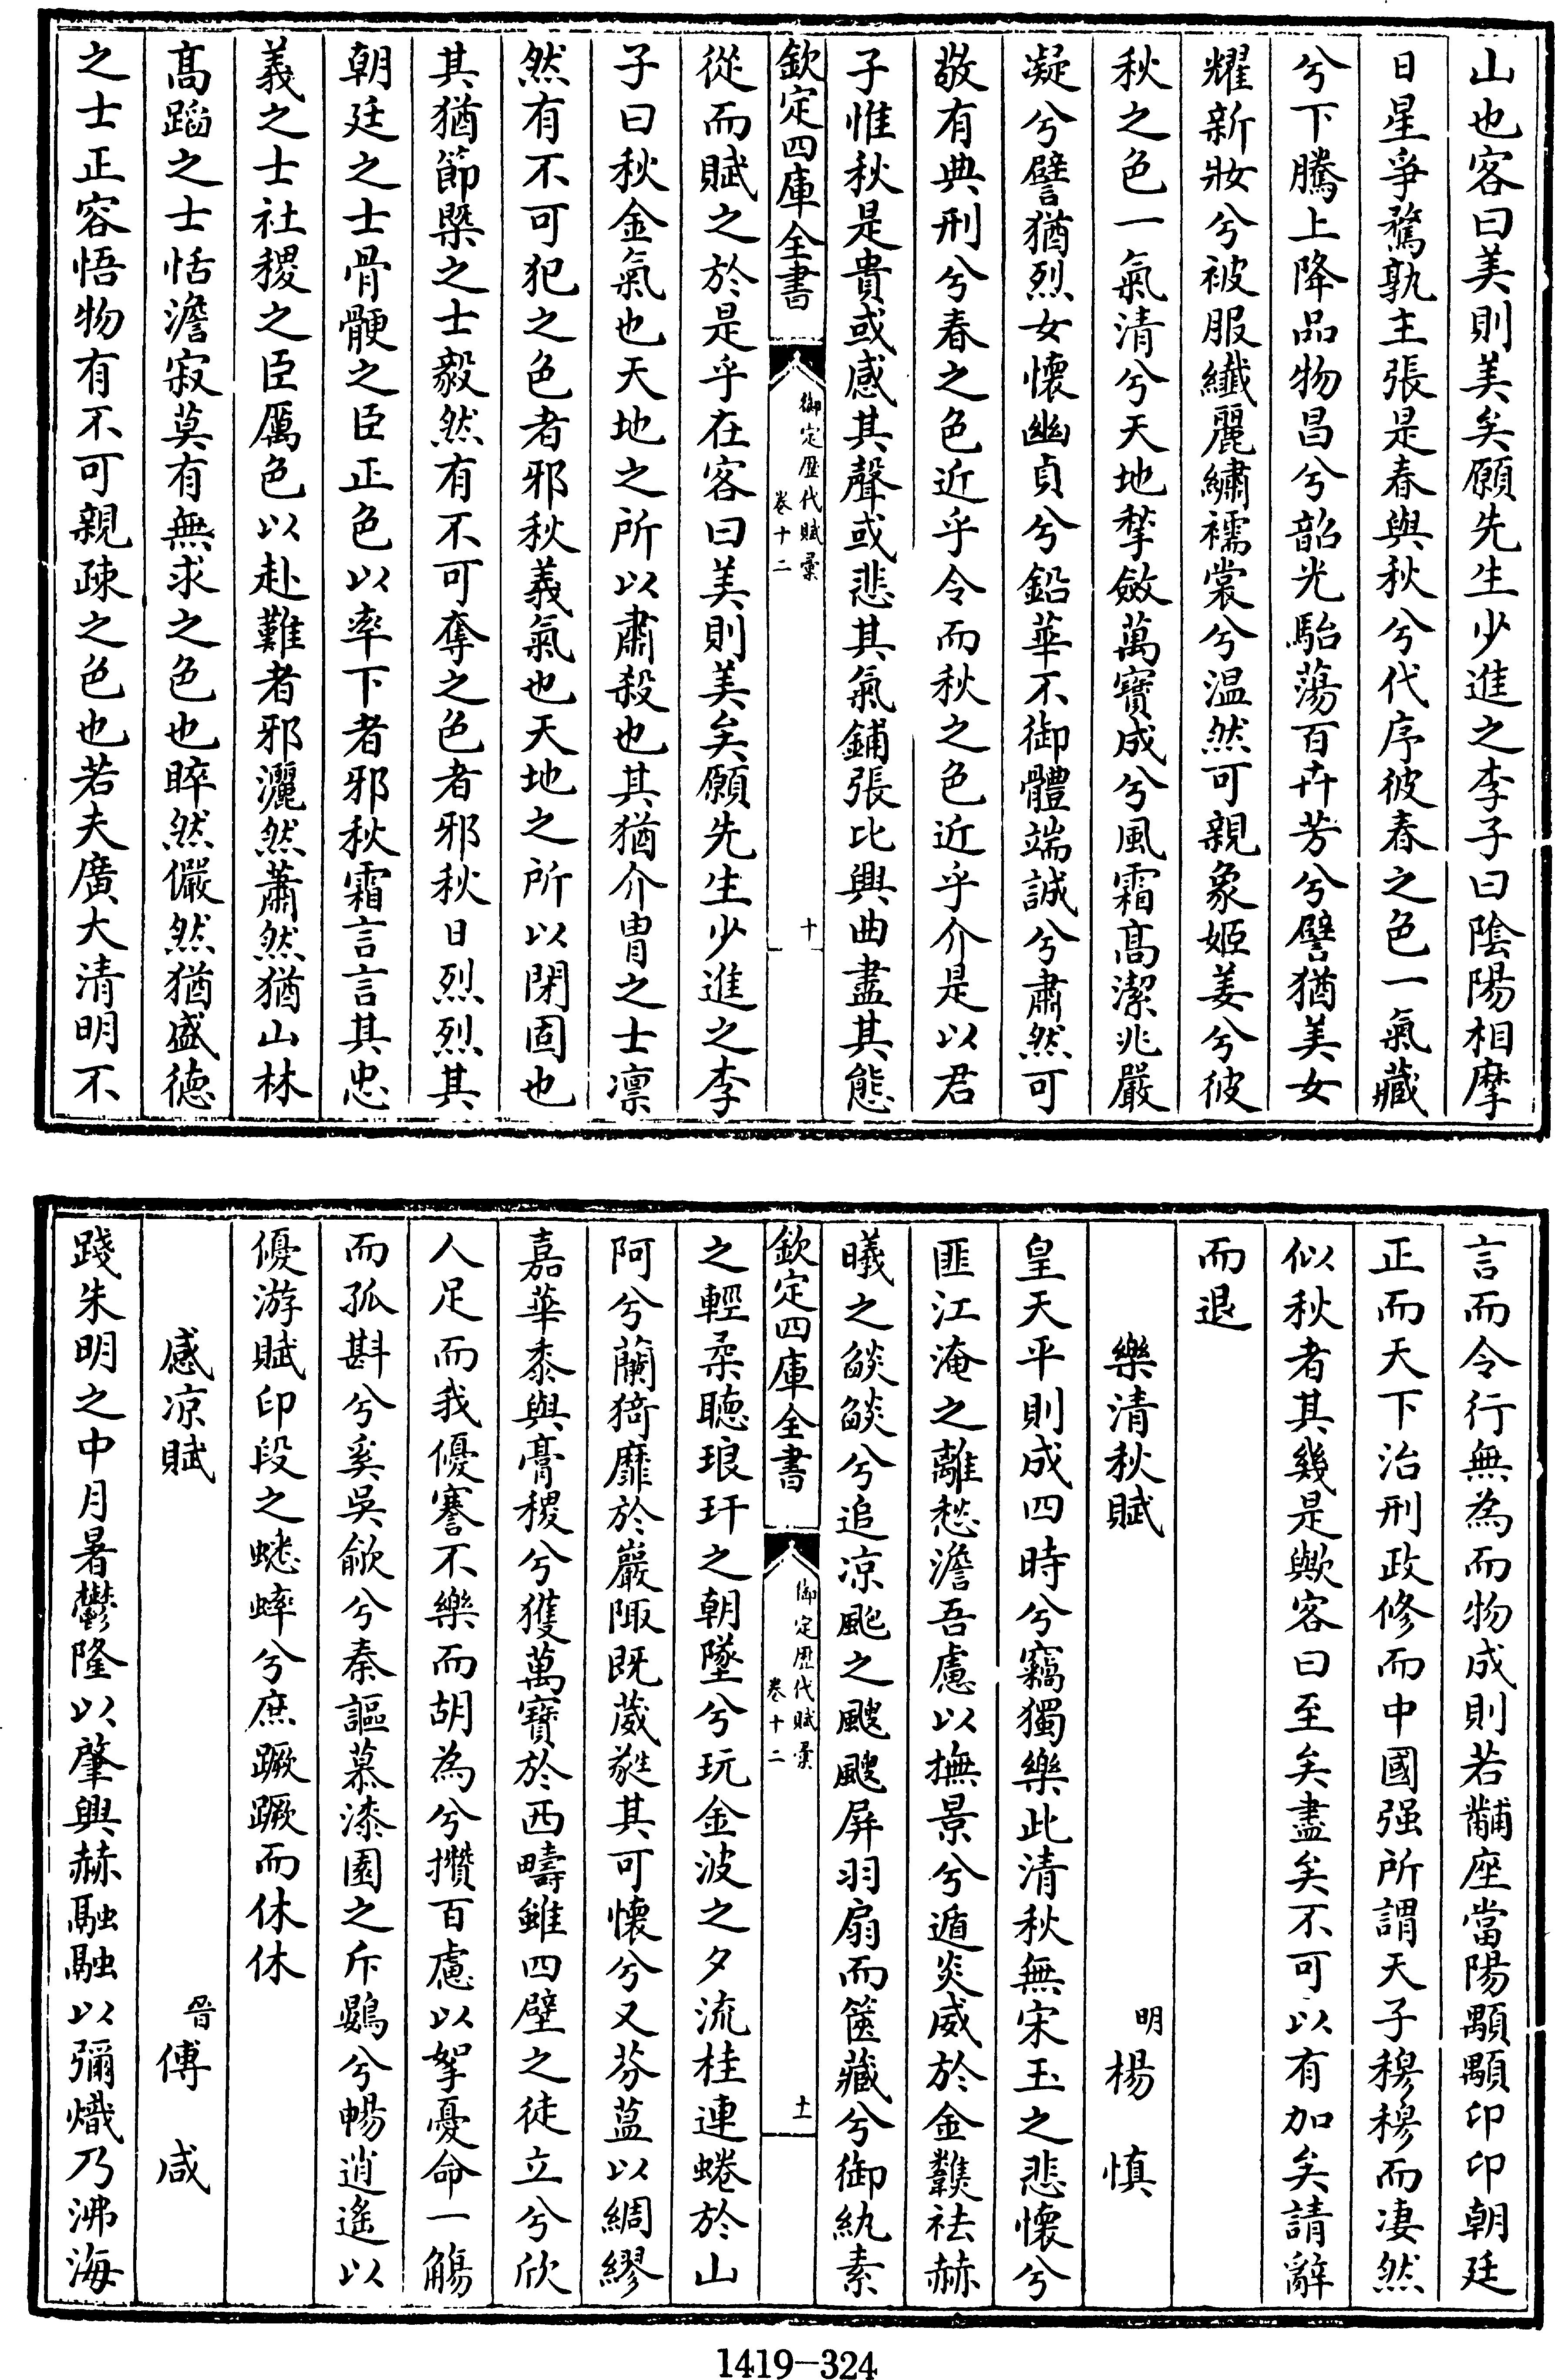 山也客曰美則美矣願先生少進之李子曰陰陽相摩
日星爭騖孰主張是春與秋兮代序彼春之色一氣藏
兮下騰上降品物昌兮韶光駘蕩百卉芳兮譬猶美女
耀新妝兮被服纖麗繡襦裳兮温然可親象姬姜兮彼
秋之色一氣清兮天地揫斂萬寶成兮風霜高潔兆嚴
凝兮譬猶烈女懷幽貞兮鉛華不御體端誠兮肅然可
敬有典刑兮春之色近乎令而秋之色近乎介是以君
子惟秋是貴或感其聲或悲其氣鋪張比興曲盡其態
欽定四庫全書
御定歷代賦彙
卷十二
十
從而賦之於是乎在客曰美則美矣願先生少進之李
子曰秋金氣也天地之所以肅殺也其猶介冑之士凛
然有不可犯之色者邪秋義氣也天地之所以閉固也
其猶節槩之士毅然有不可奪之色者邪秋日烈烈其
朝廷之士骨骾之臣正色以率下者邪秋霜言言其忠
義之士社稷之臣厲色以赴難者邪灑然蕭然猶山林
髙蹈之士恬澹寂莫有無求之色也睟然儼然猶盛德
之士正容悟物有不可親疎之色也若夫廣大清明不
言而令行無為而物成則若黼座當陽顒顒卬卬朝廷
正而天下治刑政修而中國强所謂天子穆穆而凄然
似秋者其幾是歟客曰至矣盡矣不可以有加矣請辭
而退
樂清秋賦
明
楊慎
皇天平則成四時兮竊獨樂此清秋無宋玉之悲懷兮
匪江淹之離愁澹吾慮以撫景兮遁炎威於金鸃祛赫
曦之燄燄兮追凉颮之颼颼屏羽扇而篋藏兮御紈素
欽定四庫全書
御定歷代賦彙
卷十二
十一
之輕柔聴琅玕之朝墜兮玩金波之夕流桂連蜷於山
阿兮蘭猗靡於巖陬既葳蕤其可懷兮又芬藴以綢繆
嘉華黍與膏稷兮獲萬寶於西疇雖四壁之徒立兮欣
人足而我優謇不樂而胡為兮攢百慮以挐憂命一觴
而孤斟兮奚吳歈兮秦謳慕漆園之斥鷃兮暢逍遙以
優游賦印段之蟋蟀兮庶蹶蹶而休休
感凉賦
晉
傅咸
踐朱明之中月暑鬱隆以肇興赫融融以彌熾乃沸海
1419-324